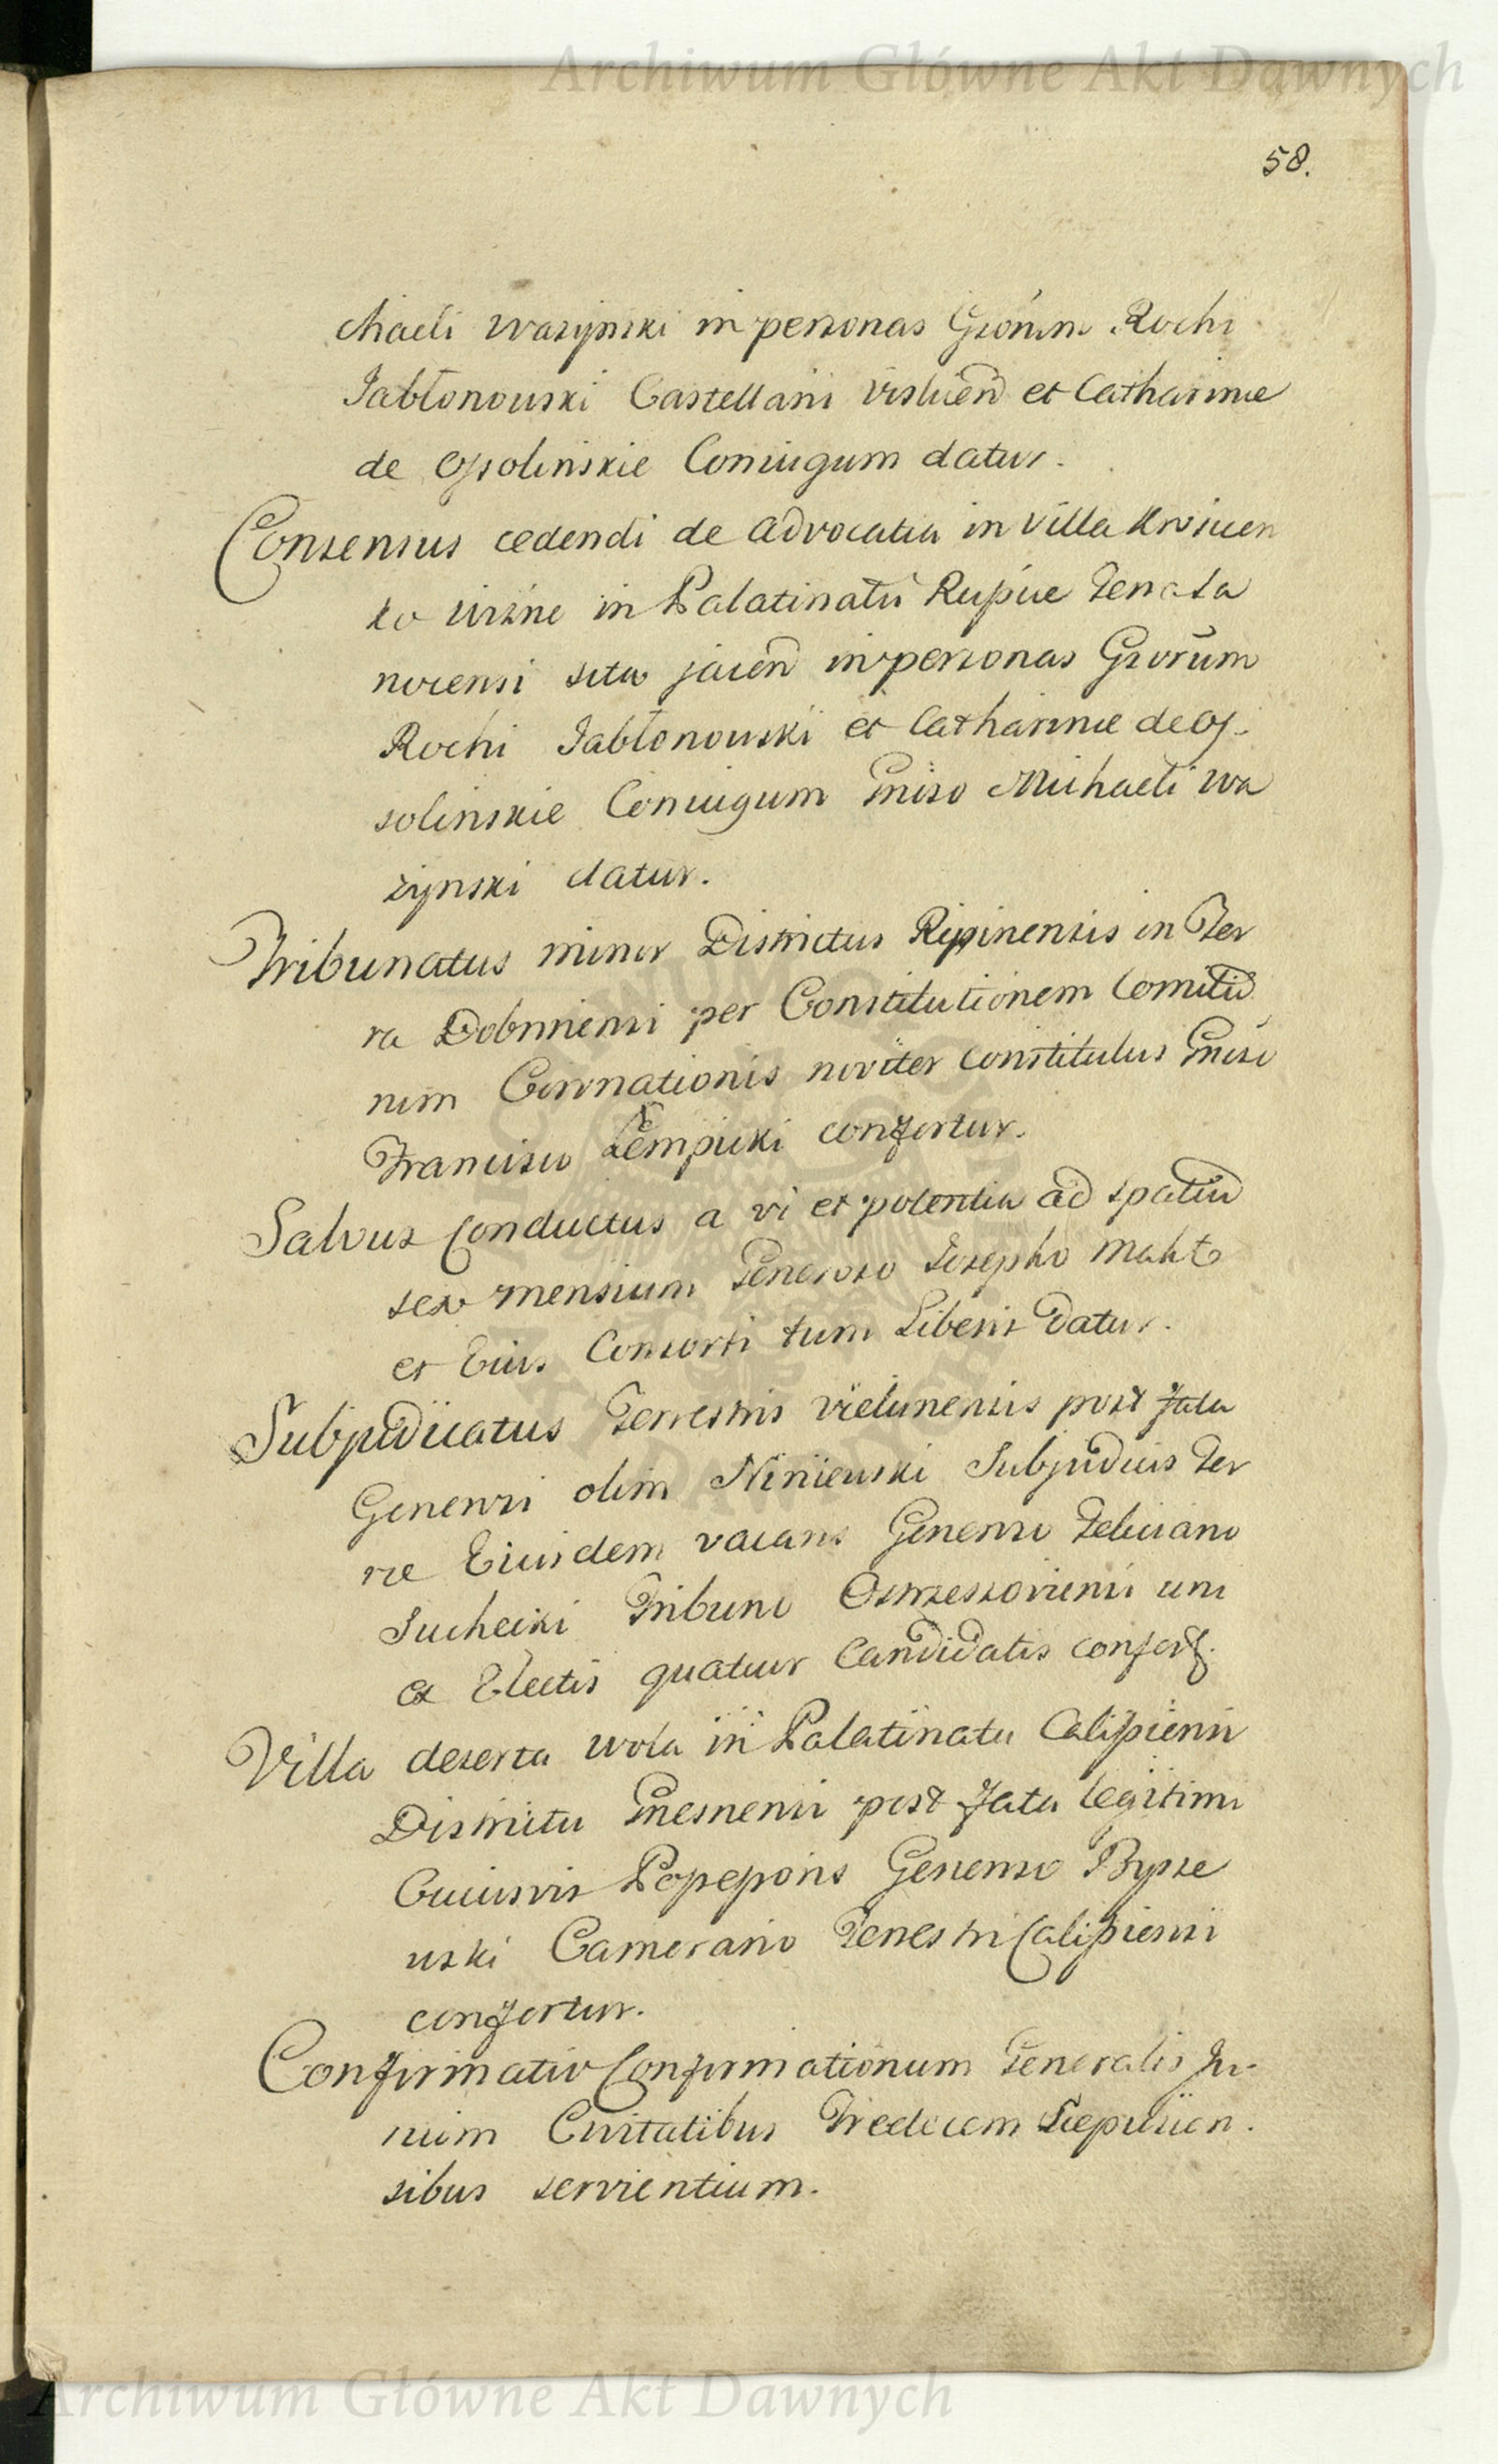 Archiwum Główne Akt Dawnych
58.
chaeli Wazynski in personas Grorum Rochi
Jabłonowski Castellani Visliceñ et Catharinae
de Ossolinskie Coniugum datur.
Consensus cedendi de advocatia in Villa Krościen
ko wizne in Palatinatu Russiae Terra Sa
nocensi sita jaceñ in personas Grorum
Rochi Jabłonowski et Catharinae de Os-
solinskie Coniugum Gniso Michaeli Wa
zynski datur.
Tribunatus minor Districtus Rypinensis in Ter
ra Dobrinensi per Constitutionem Comitio
rum Coronationis noviter constitutus Gniso
Francisco Łempicki confertur.
Salvus Conductus a vi et potentia ad spatiū
sex mensium Generoso Josepho
et Eius Consorti tum Liberis datur.
Subjudicatus Terrestris Vielunensis post fata
Generosi olim Niniewski Subjudicis Ter
rae Eiusdem vacans Generoso Feliciano
Sucheski Tribuno Ostrzeszoviensi uni
ex Electis quatuor Candidatis confert.
Villa deserta Wola in Palatinatu Calissiensi
Districtu Gnesnensi post fata legitimi
Cuiusvis Possessoris Generoso Bysze
wski Camerario Terrestri Calissiensi
confertur.
Confirmatio Confirmationum Generalis Ju-
rium Civitatibus Tredecem Scepusien-
sibus servientium.
Archiwum Główne Akt Dawnych